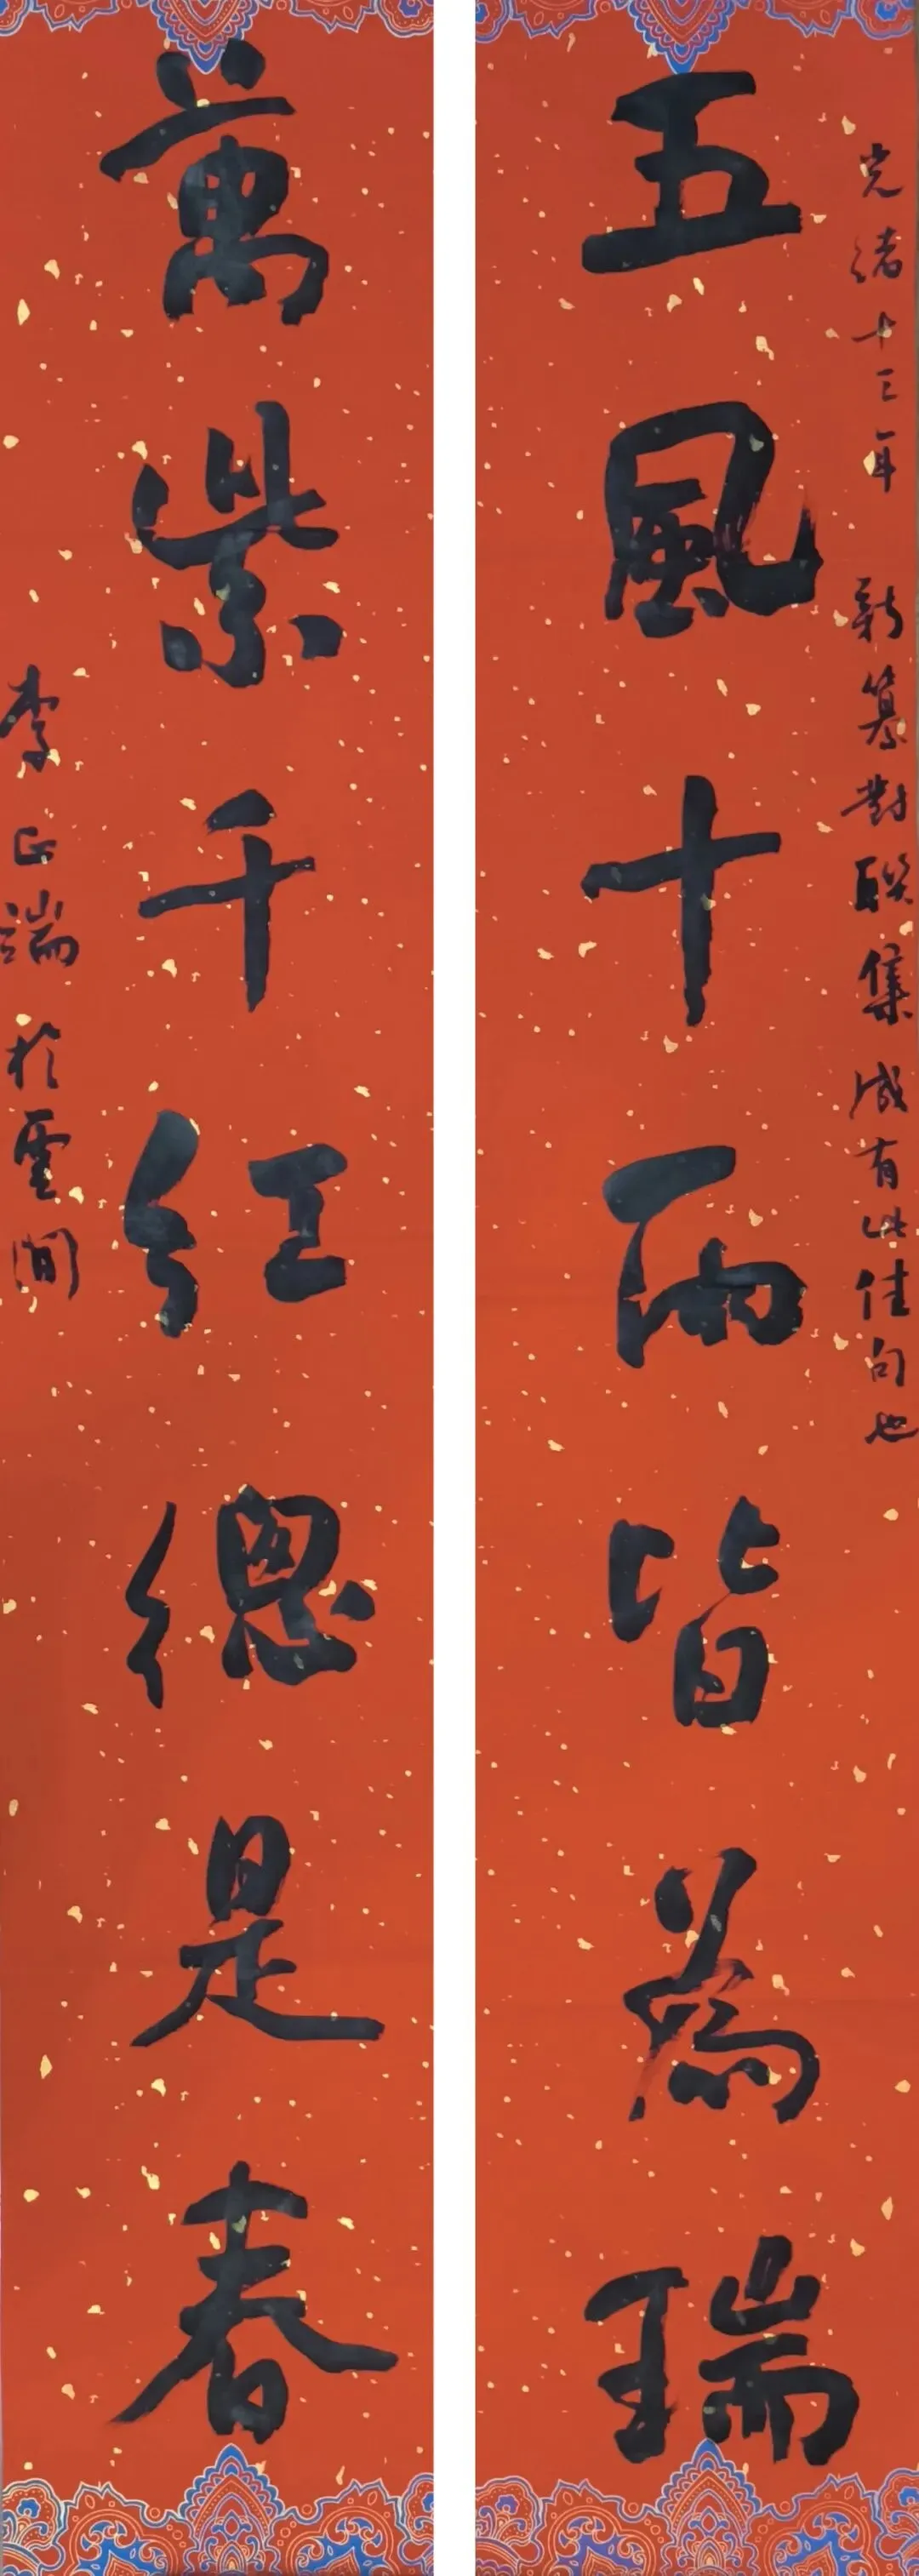 光緒十三年 新篡對聯集成有此佳句也
五風十雨皆為瑞
萬紫千紅總是春
李正端於雲間